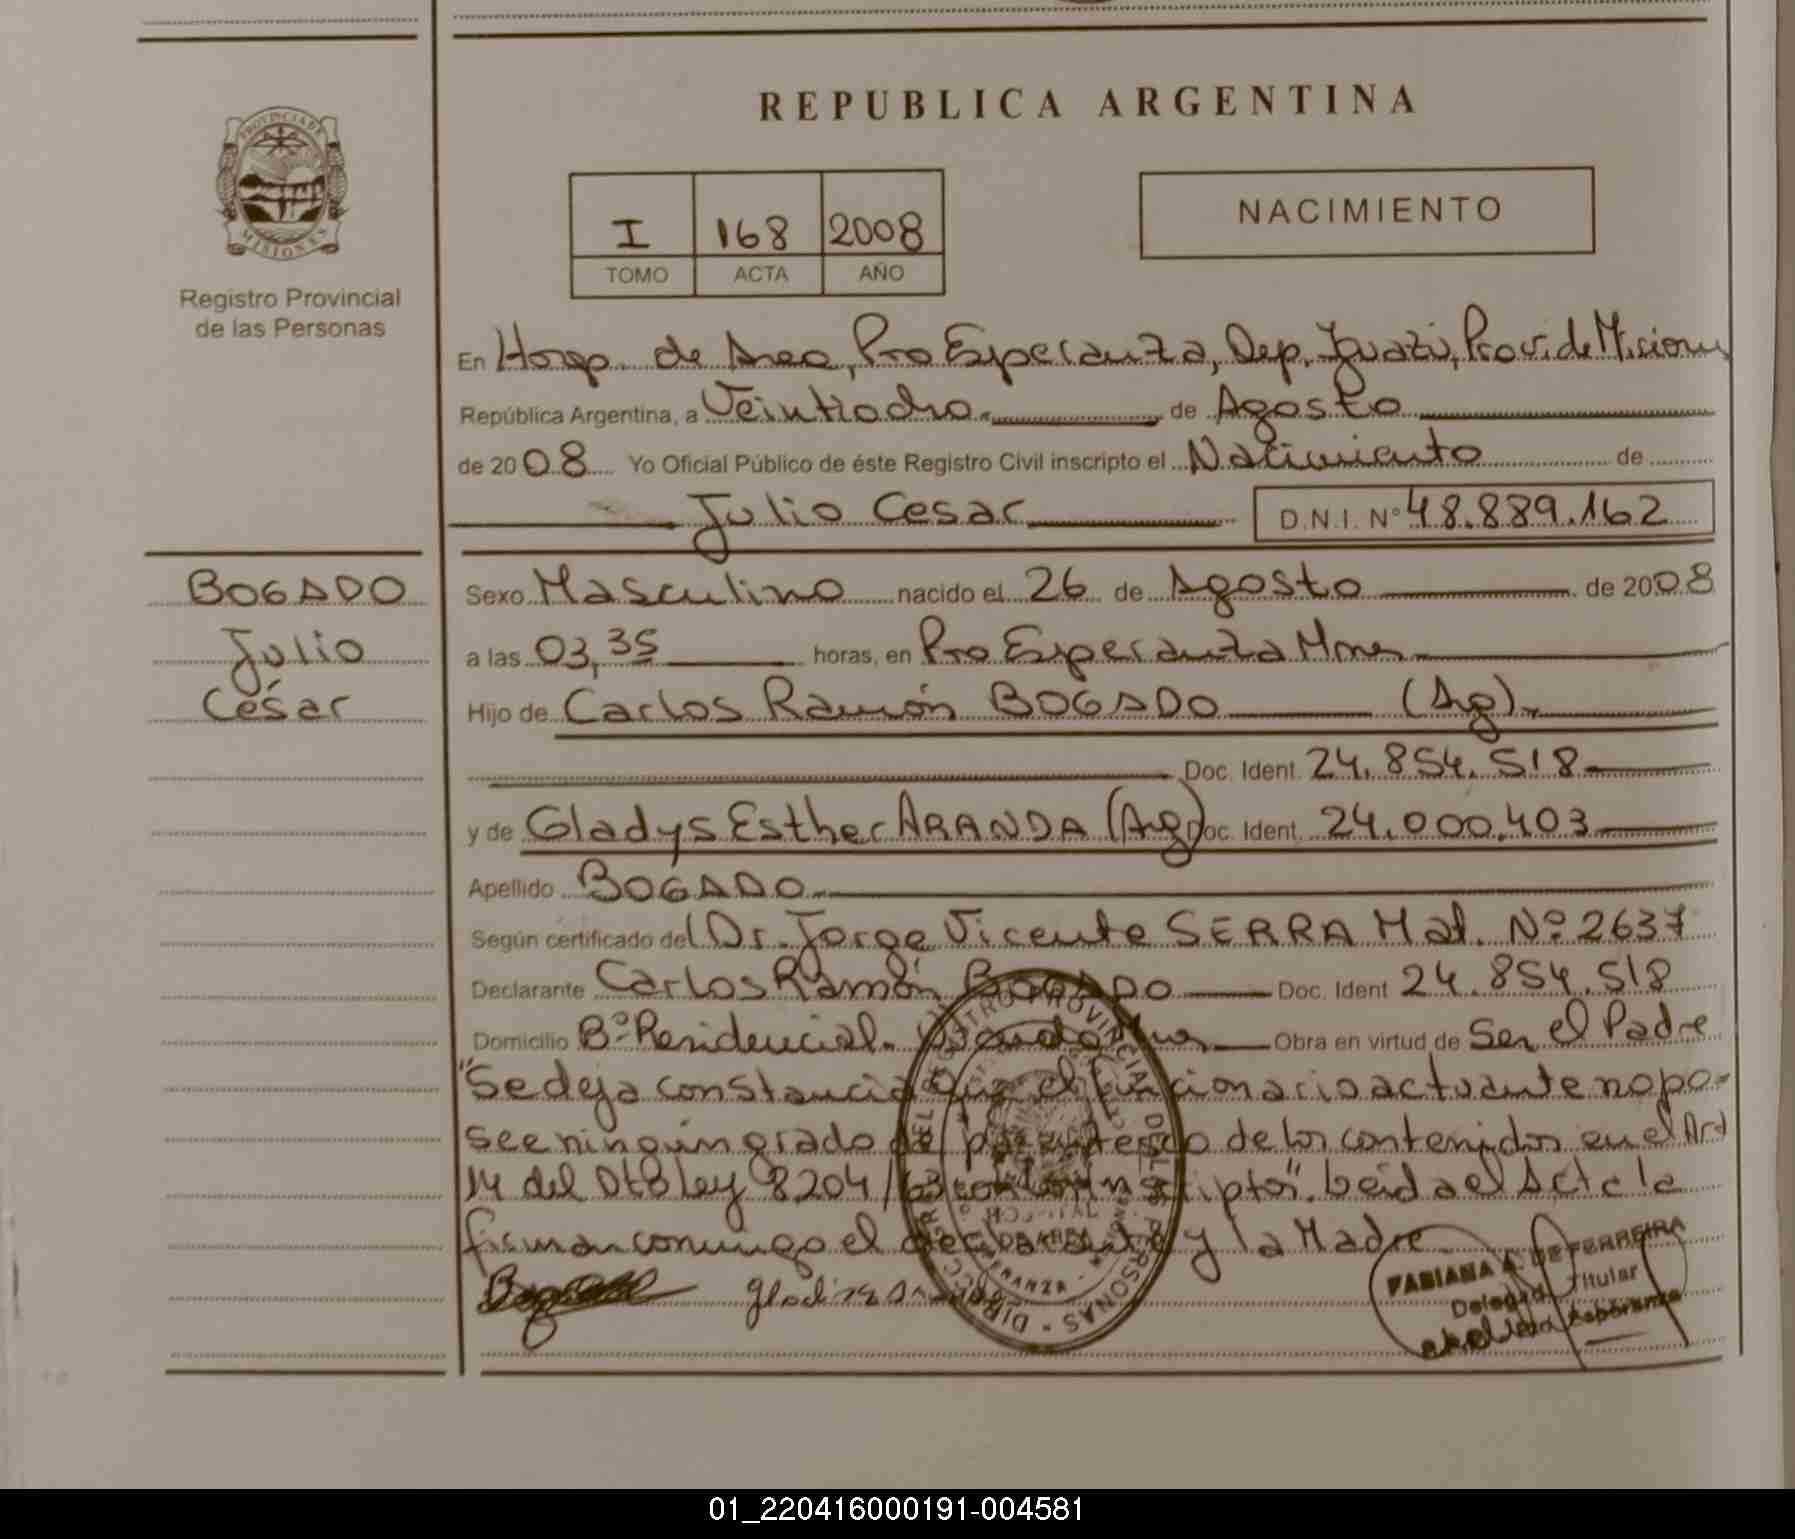 REPUBLICA ARGENTINA
PROVINCIA DE
MISIONES
Registro Provincial
de las Personas
I 168 2008
TOMO ACTA AÑO
NACIMIENTO
En Hosp. de Area, Pto Esperanza, Dep. Iguazú, Prov. de Misiones
República Argentina, a Veintiocho de Agosto
de 2008 Yo Oficial Público de éste Registro Civil inscripto el Nacimiento de
Julio Cesar D.N.I. Nº 48.889.162
BOGADO
Julio
César
Sexo Masculino nacido el 26 de Agosto de 2008
a las 03,35 horas, en Pto Esperanza Mnes
Hijo de Carlos Ramón BOGADO (Arg).
Doc. Ident. 24.854.518
y de Gladys Esther ARANDA (Arg) Doc. Ident. 24.000.403
Apellido BOGADO
Según certificado del Dr. Jorge Vicente SERRA Mat. Nº 2637
Declarante Carlos Ramón BOGADO Doc. Ident 24.854.518
Domicilio Bº Residencial. Obra en virtud de Ser el Padre
"Se deja constancia que el funcionario actuante no po-
see ningún grado de parentesco de los contenidos en el Art
14 del Dto Ley 8204/63 con los inscriptos". Leida el Acta la
firman conmigo el declarante y la Madre
FABIANA A. DE FERREIRA
Delegada Titular
Esperanza
01_220416000191-004581